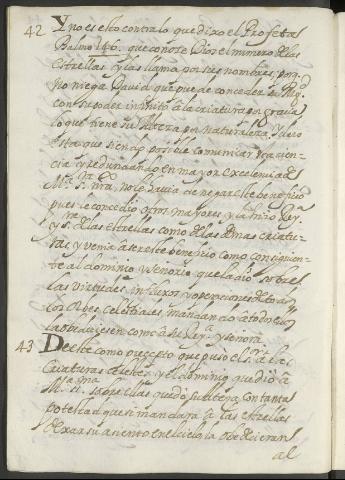 42 Y no es esto contra lo que dixo el Profeta
Psalmo 146. que conose Dios el numero de las
estrellas y las llama por sus nombres, por q.
no niega David que puede conceder su Mag.d
con su poder infinito à la criatura por gracia
lo que tiene su Alteza por naturaleza. Y supu
esto que siendo posible comunicar esta cien
cia y redundando en mayor excelencia de
M.a S.ra nra, no le havia de negar este beneficio
pues le concedio otros mayores y la hizo Rey.a
y s.ra de las estrellas como de las demas criatu
ras y venia à ser este beneficio como consiguien
te al dominio y senorio que la dio sobre
las virtudes influxos y operaciones de todos
los Orbes celestiales mandando à todos ellos
la obedeciesen como à su Rey.a y senora.
43 De este como precepto que puso el s.r à las
criaturas celestes y el dominio que dió à
M.a SS.ma sobre ellas quedó su alteza con tanta
potestad que si mandara à las estrellas
dexar su asiento en el cielo, la obedecieran
al